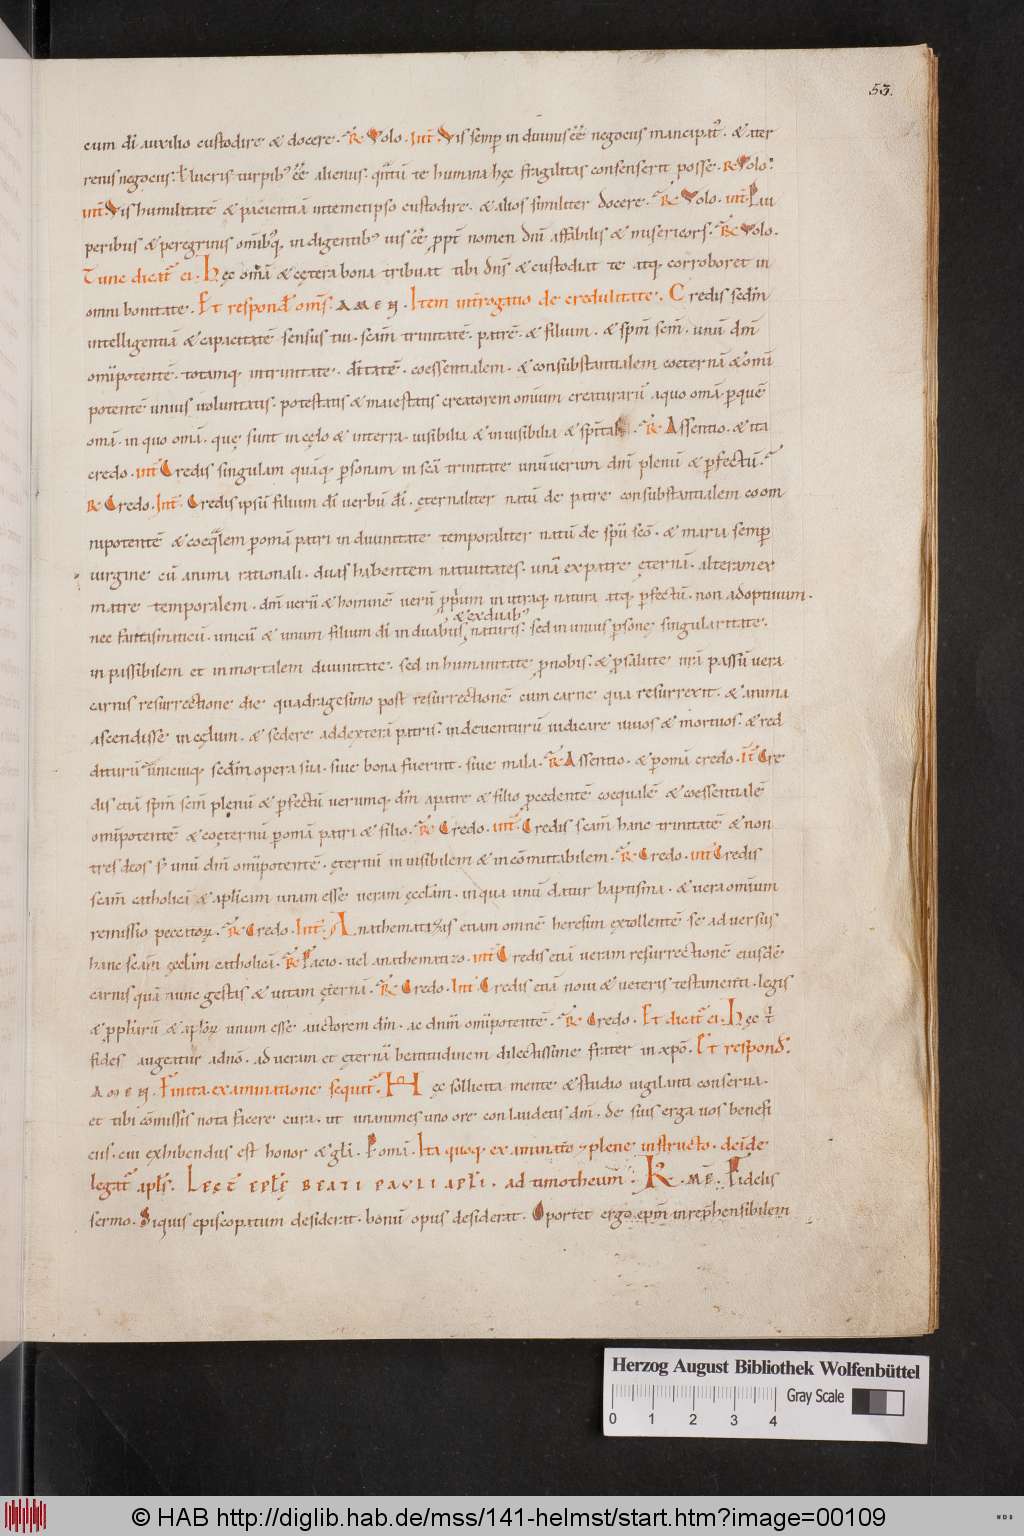 53.
cum dī auxilio custodire & docere. R̄ Volo. Int̄ Vis semp̄ in diuinis ēē negociis mancipat᷒. & a ter
renis negociis. t̄ lucris turpib᷒ ēē alienus. qn̄tū te humana hęc fragilitas consenserit posse. R̄ Volo.
int̄ Vis humilitatē & pacientiā in temetipso custodire. & alios similiter docere. R̄ Volo. int̄. Pau
peribus & peregrinis omib᷒q; indigentib᷒ uis ēē ꝓpt̄ nomen dn̄i affabilis & misericors. R̄ Volo.
Tunc dicat̄ ei. Hęc om̄a & cętera bona tribuat tibi dn̄s & custodiat te atq; corroboret in
omni bonitate. Et respond̄ om̄s. AMEN. Item int̄rogatio de credulitate. Credis sed̄m
intelligentiā & capacitatē sensus tui. sc̄am trinitatē. patrē. & filium. & sp̄m sc̄m. unū dm̄
omīpotentē. totamq; in trinitate. dītatē. coessentialem. & consubstantialem coeternā & omī
potentē unius uoluntatis. potestatis & maiestatis creatorem omium creaturarū a quo om̄a. ꝑ quē
om̄a. in quo om̄a. quę sunt in cęlo & in terra. uisibilia & inuisibilia & sp̄italia. R̄ Assentio. & ita
credo. int̄ Credis singulam quāq; ꝑsonam in sc̄a trinitate unū uerum dm̄ plenū & ꝑfectū.
R̄ Credo. Int̄. Credis ipsū filium dī uerbū dī. ęternaliter natū de patre consubstantialem coom
nipotentē & coeq̄lem ꝑ om̄a patri in diuinitate temporaliter natū de sp̄u sc̄o. & maria semp̄
uirgine cū anima rationali. duas habentem natiuitates. unā ex patre ęternā. alteram ex
matre temporalem. dm̄ uerū & hominē uerū ꝓp̄um in utraq; natura atq; ꝑfectū. non adoptiuum.
& ex duab᷒
nec fantasmaticū. unicū & unum filium dī in duabus naturis. sed in unius ꝑsonę singularitate.
in passibilem et in mortalem diuinitate. sed in humanitate ꝓ nobis. & ꝓ salute nr̄a passū uera
carnis resurrectione die quadragesimo post resurrectionē cum carne qua resurrexit. & anima
ascendisse in cęlum. & sedere ad dexterā patris. inde uenturū iudicare uiuos & mortuos. & red
diturū unicuiq; sed̄m opera sua. siue bona fuerint. siue mala. R̄ Assentio. & ꝑ om̄a credo. Īt̄ Cre
dis etiā sp̄m sc̄m plenū & ꝑfectū uerumq; dm̄ a patre & filio ꝓcedentē coequalē & coessentialē
omīpotentē & coęternū ꝑ om̄a patri & filio. R̄ Credo. int̄. Credis sc̄am hanc trinitatē & non
tres deos s; unū dm̄ omīpotentē. ęternū inuisibilem & incōmutabilem. R̄ Credo. int̄ Credis
sc̄am catholicā & ap̄licam unam esse ueram ęcclam. in qua unū datur baptisma. & uera omium
remissio peccatoꝝ. R̄ Credo. Int̄. Anathematizas etiam omnē heresim extollentē se aduersus
hanc sc̄am ęcclīm catholicā. R̄ Facio. uel anathematizo. int̄ Credis etiā ueram resurrectionē eiusdē
carnis quā nunc gestas & uitam ęternā. R̄ Credo. Int̄ Credis etiā noui & ueteris testamenti. legis
& ꝓph̄arū & ap̄loꝝ unum esse auctorem dm̄. ac dnm̄ omīpotentē. R̄ Credo. Et dicat̄ ei. Hęc t̄
fides augeatur a dn̄o. ad ueram et ęternā beatitudinem dilectissime frater in xp̄o. Et respond̄.
AMEN. Finita examinatione sequit̄. Hęc sollicita mente & studio uigilanti conserua.
et tibi cōmissis nota facere cura. ut unanimes uno ore conlaudetis dm̄. de suis erga uos benefi
ciis. cui exhibendus est honor & glī. P om̄a. Ita quoq; examinato & plene instructo. deīde
legat̄ ap̄ls. LECT EPLĘ BEATI PAULI APLI. ad timotheum. K. ME. Fidelis
sermo. Siquis episcopatum desiderat. bonū opus desiderat. Oportet ergo epm̄ inrep̄hensibilem
Herzog August Bibliothek Wolfenbüttel
Gray Scale
0 1 2 3 4
© HAB http://diglib.hab.de/mss/141-helmst/start.htm?image=00109